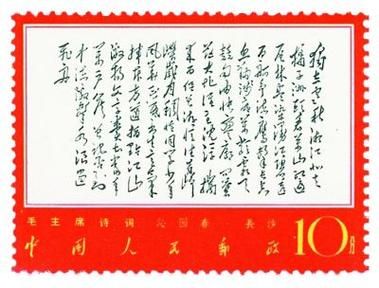 独立寒秋湘江北去
橘子洲头看万山红遍
层林尽染漫江碧透
百舸争流鹰击长空
鱼翔浅底万类霜天
竞自由怅寥廓问
苍茫大地谁主沉浮 携
来百侣曾游忆往昔
峥嵘岁月稠恰同学少年
风华正茂书生意气
挥斥方遒指点江山
激扬文字粪土当年
万户侯曾记否到
中流击水浪遏
飞舟
毛主席诗词 沁园春 长沙
中国人民邮政 10分